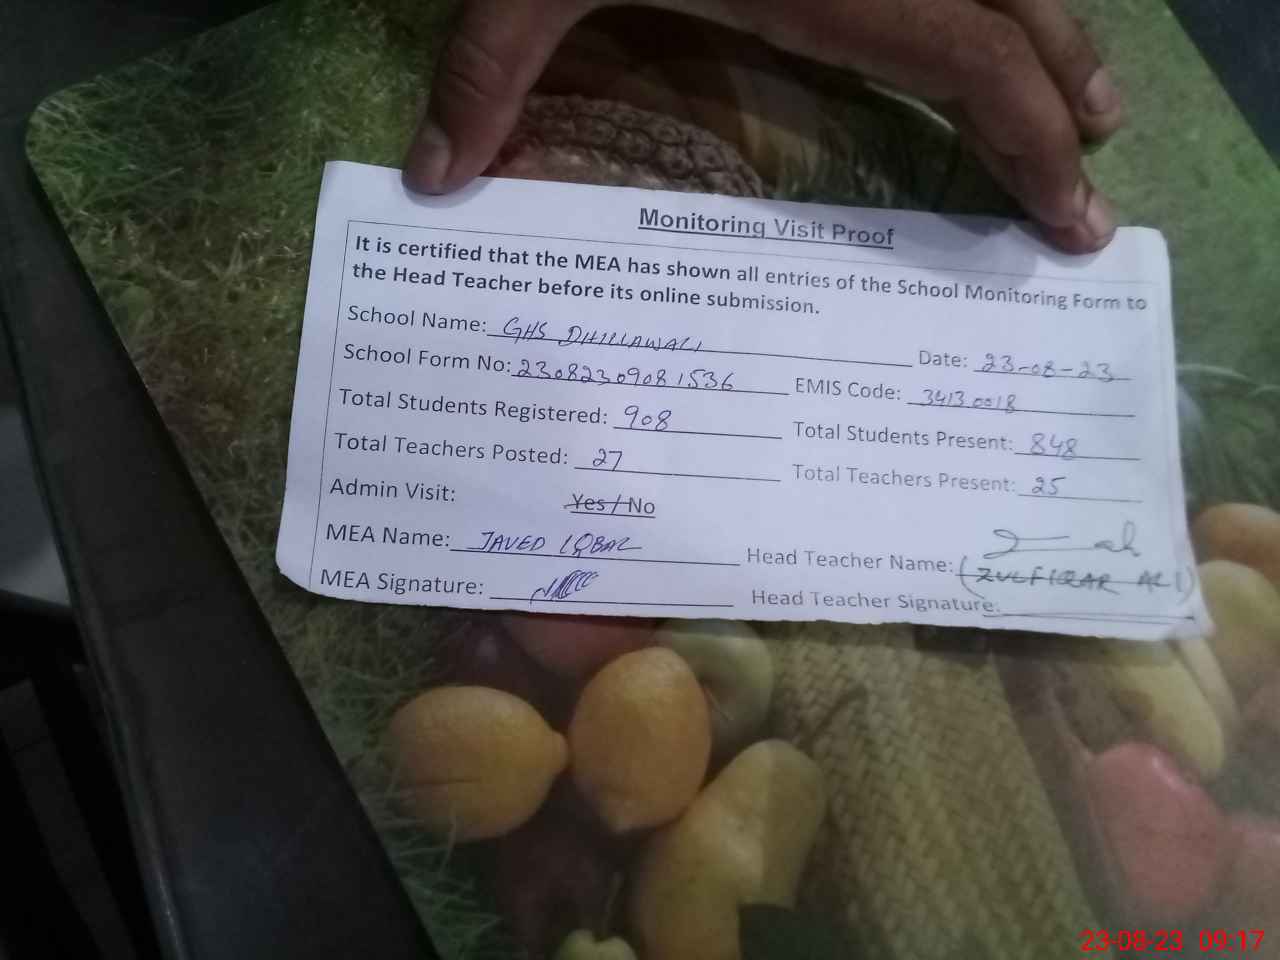 Monitoring Visit Proof
It is certified that the MEA has shown all entries of the School Monitoring Form to
the Head Teacher before its online submission.
School Name: GHS DHILLAWALI Date: 23-08-23
School Form No: 23082309081536 EMIS Code: 34130018
Total Students Registered: 908 Total Students Present: 848
Total Teachers Posted: 27 Total Teachers Present: 25
Admin Visit: Yes / No
MEA Name: JAVED IQBAL Head Teacher Name: (ZULFIQAR ALI)
MEA Signature: Head Teacher Signature:
23-08-23 09:17